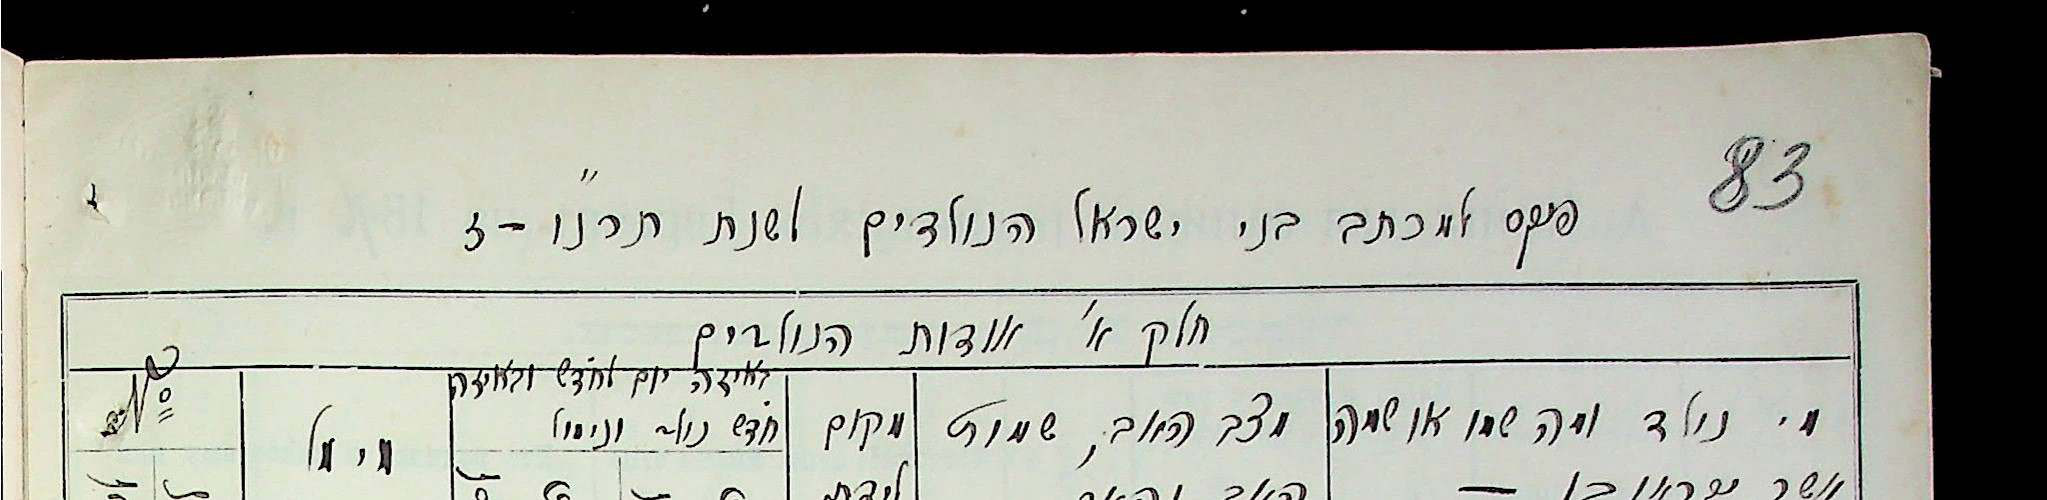 83
פנקס למכתב בני ישראל הנולדים לשנת תרנ״ו - ז
חלק א׳ אודות הנולדים
מי נולד ומה שמו או שמה
אשר יקראו בו —
מצב האב, שמות
האב והאם
מקום
לידת
באיזה יום לחדש ובאיזה
חדש נולד ונימול
מי מל
№